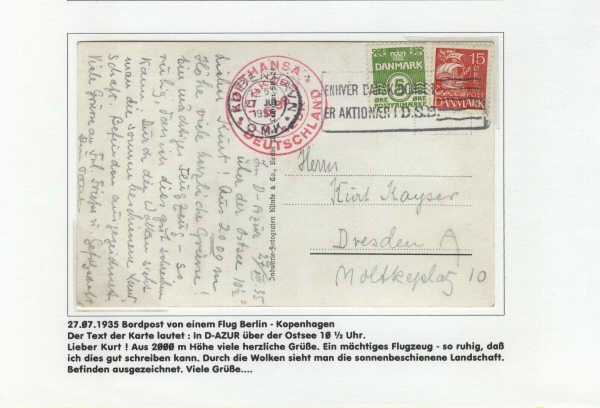 In D-Azur 27/VII 35
über der Ostsee 10½
Lieber Kurt! Aus 2000 m
Höhe viele herzliche Grüsse!
Ein mächtiges Flugzeug - so
ruhig, daß ich dies gut schreiben
kann. Durch die Wolken sieht
man die sonnenbeschienene Land-
schaft. Befinden ausgezeichnet.
Viele Grüsse an
LUFTHANSA
DEUTSCHLAND
KØBENHAVN
JUL
OMK
DANMARK
5
ØRE ØRE
15
DANMARK
ENHVER DANSK
ER AKTIONÆR I D.S.B.
Industrie-Fotografen Klinke & Co., Berlin
Herrn
Kurt Kayser
Dresden A
Moltkeplatz 10
27.07.1935 Bordpost von einem Flug Berlin - Kopenhagen
Der Text der Karte lautet : In D-AZUR über der Ostsee 10 ½ Uhr.
Lieber Kurt ! Aus 2000 m Höhe viele herzliche Grüße. Ein mächtiges Flugzeug - so ruhig, daß
ich dies gut schreiben kann. Durch die Wolken sieht man die sonnenbeschienene Landschaft.
Befinden ausgezeichnet. Viele Grüße....